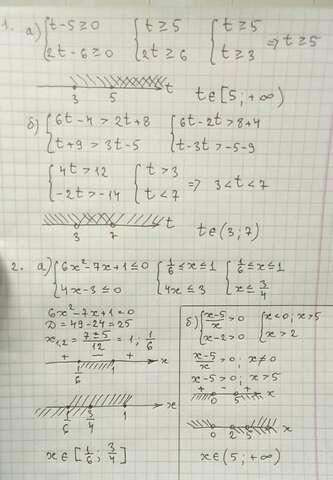 1. а) { t-5 ≥ 0 { t ≥ 5 { t ≥ 5
2t-6 ≥ 0 2t ≥ 6 t ≥ 3 ⇒ t ≥ 5
3 5 t t ∈ [5; +∞)
б) { 6t-4 > 2t+8 { 6t-2t > 8+4
t+9 > 3t-5 t-3t > -5-9
{ 4t > 12 { t > 3
-2t > -14 t < 7 ⇒ 3 < t < 7
3 7 t t ∈ (3; 7)
2. а) { 6x²-7x+1 ≤ 0 { 1/6 ≤ x ≤ 1 { 1/6 ≤ x ≤ 1
4x-3 ≤ 0 4x ≤ 3 x ≤ 3/4
6x²-7x+1=0
D = 49-24 = 25
x₁,₂ = 7±5/12 = 1; 1/6
+ − +
1/6 1 x
1/6 3/4 1 x
x ∈ [1/6; 3/4]
б) { x-5/x > 0 { x<0; x>5
x-2>0 x > 2
x-5/x > 0; x≠0
x-5>0; x>5
+ - +
0 5 x
0 2 5 x
x ∈ (5; +∞)